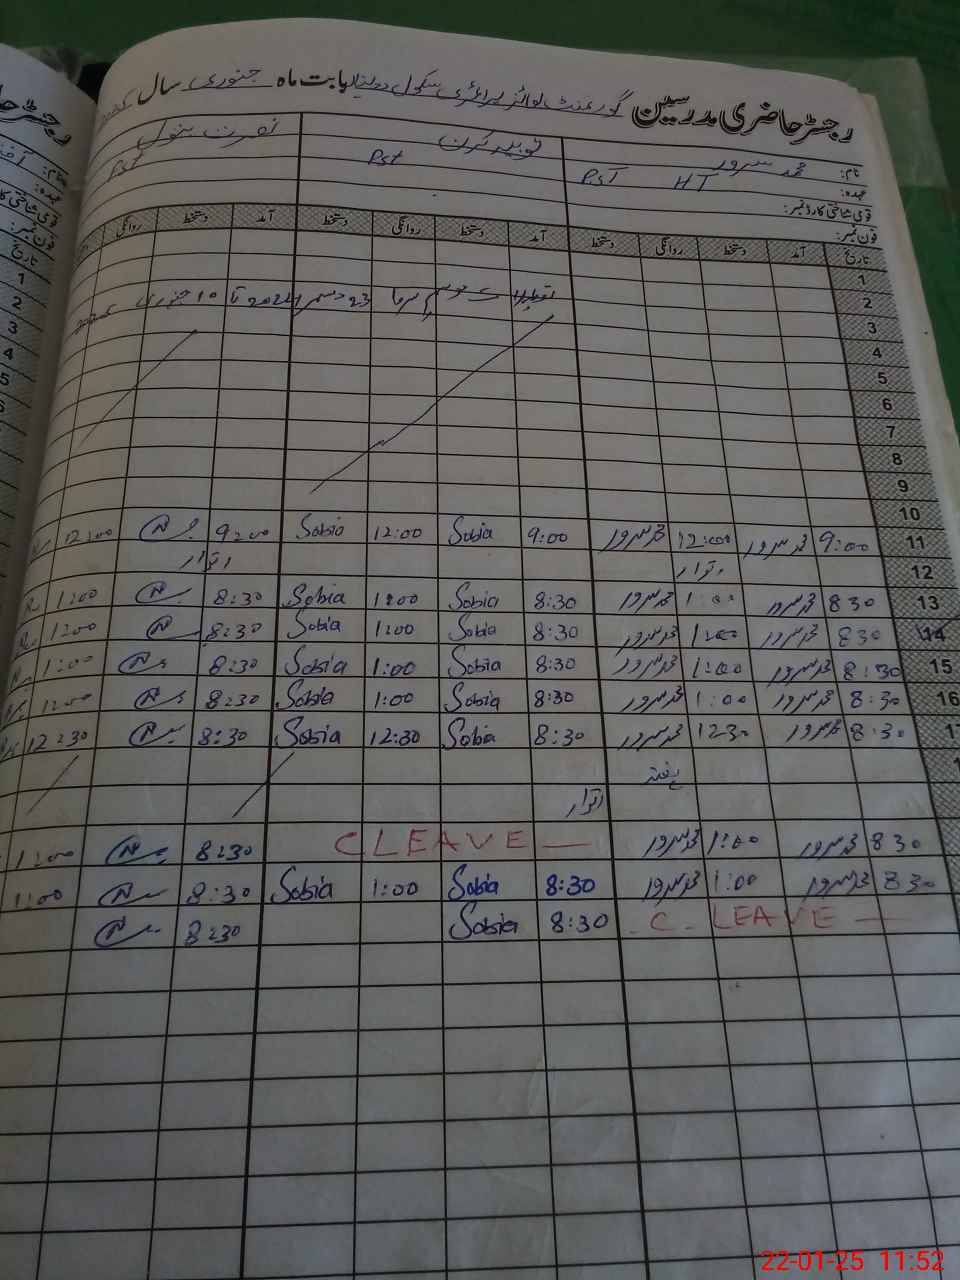 رجسٹر حاضری مدرسین گورنمنٹ بوائز پرائمری سکول بابت ماہ جنوری سال
نام: محمد سرور ثوبیہ کرن نصرت بتول
عہدہ: PST HT Pst Pst
قومی شناختی کارڈ نمبر:
فون نمبر:
تاریخ آمد دستخط روانگی دستخط آمد دستخط روانگی دستخط آمد دستخط روانگی
1
2 تعطیلات موسم سرما 23 دسمبر 2024 تا 10 جنوری
3
4
5
6
7
8
9
10
11 9:00 محمد سرور 12:00 محمد سرور 9:00 Sobia 12:00 Sobia 9:00 12:00
12 اتوار اتوار
13 8:30 محمد سرور 1:00 محمد سرور 8:30 Sobia 1:00 Sobia 8:30 1:00
14 8:30 محمد سرور 1:00 محمد سرور 8:30 Sobia 1:00 Sobia 8:30 1:00
15 8:30 محمد سرور 1:00 محمد سرور 8:30 Sobia 1:00 Sobia 8:30 1:00
16 8:30 محمد سرور 1:00 محمد سرور 8:30 Sobia 1:00 Sobia 8:30 1:00
17 8:30 محمد سرور 12:30 محمد سرور 8:30 Sobia 12:30 Sobia 8:30 12:30
ہفتہ
اتوار
8:30 محمد سرور 1:00 محمد سرور C LEAVE — 8:30 1:00
8:30 محمد سرور 1:00 محمد سرور 8:30 Sobia 1:00 Sobia 8:30 1:00
C. LEAVE — 8:30 Sobia 8:30
22-01-25 11:52